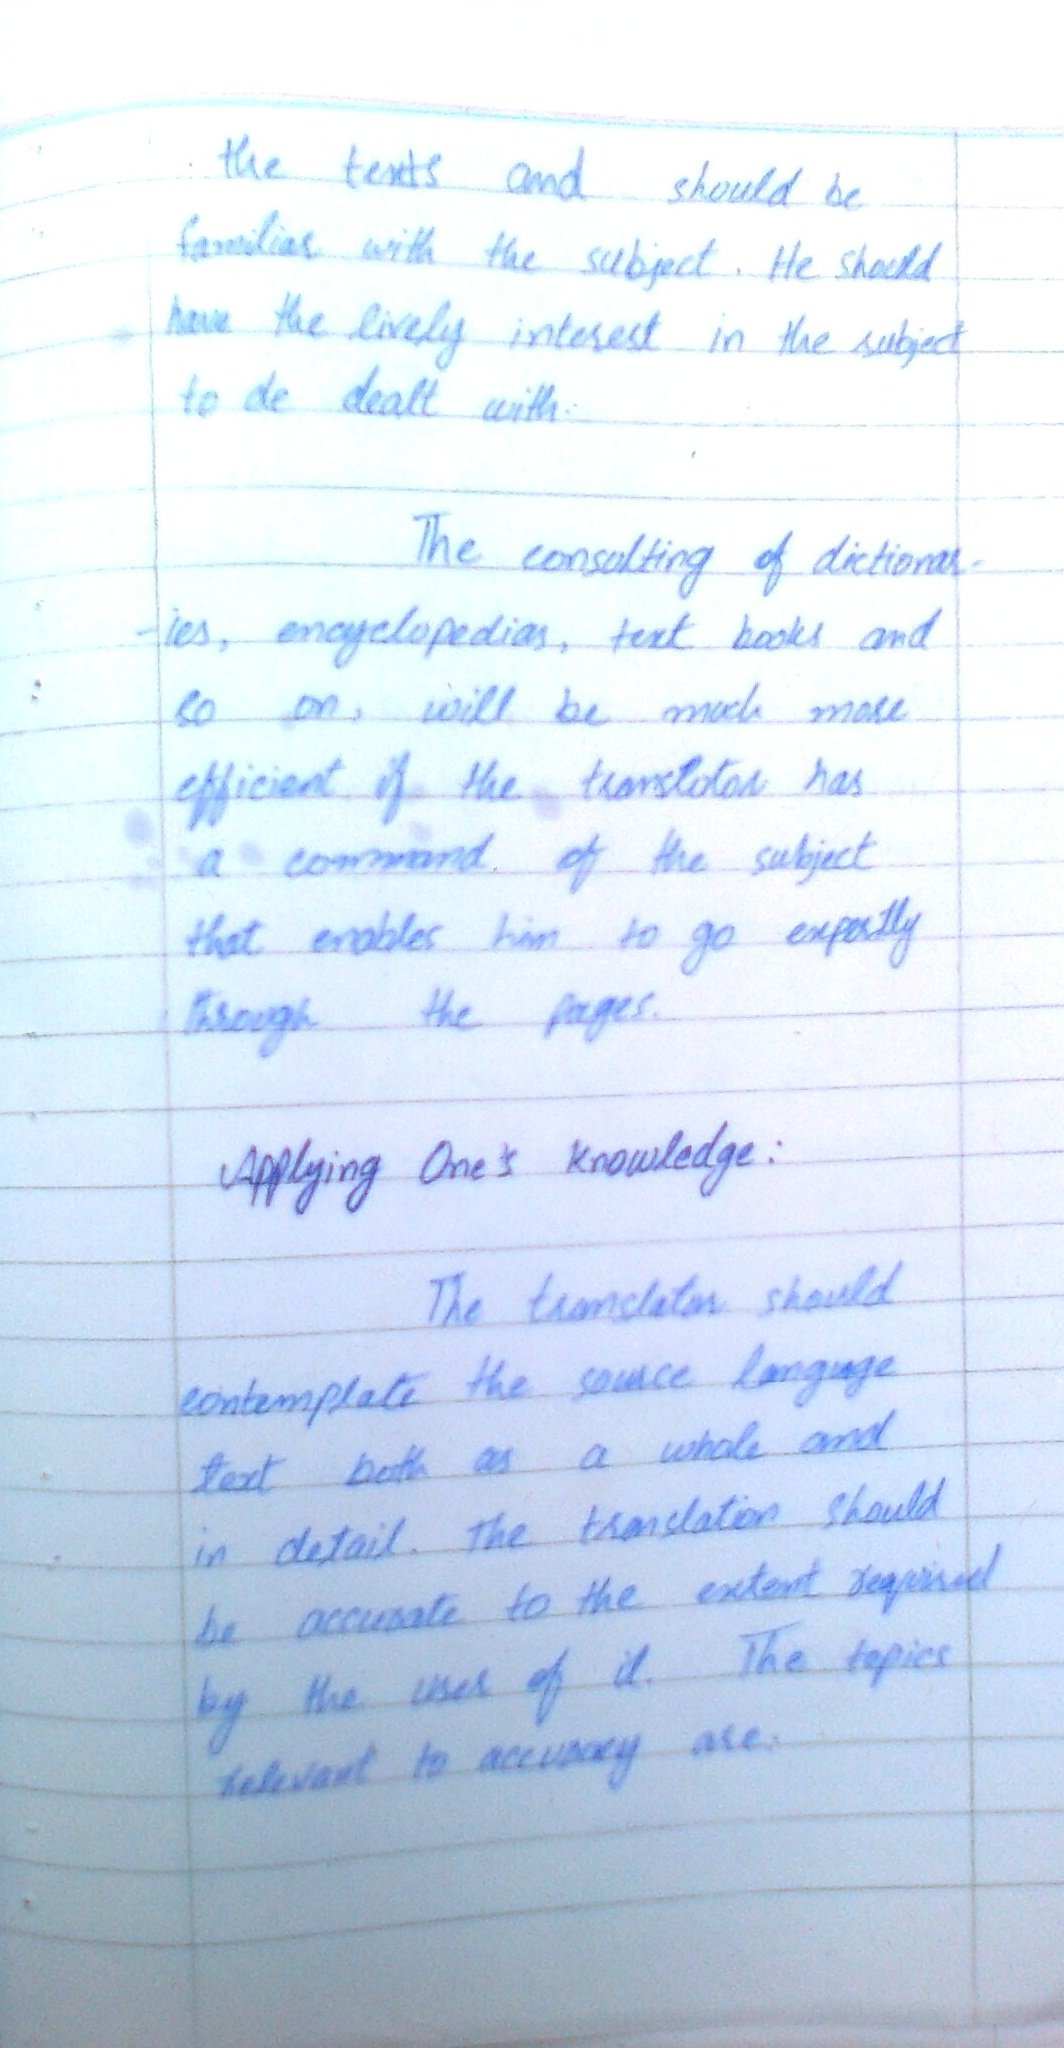 the texts and should be
familiar with the subject. He should
have the lively interest in the subject
to de dealt with.
The consulting of dictionar-
-ies, encyclopedias, text books and
so on, will be much more
efficient if the translator has
a command of the subject
that enables him to go expertly
through the pages.
Applying One's knowledge:
The translator should
contemplate the source language
text both as a whole and
in detail. The translation should
be accurate to the extent required
by the user of it. The topics
relevant to accuracy are.